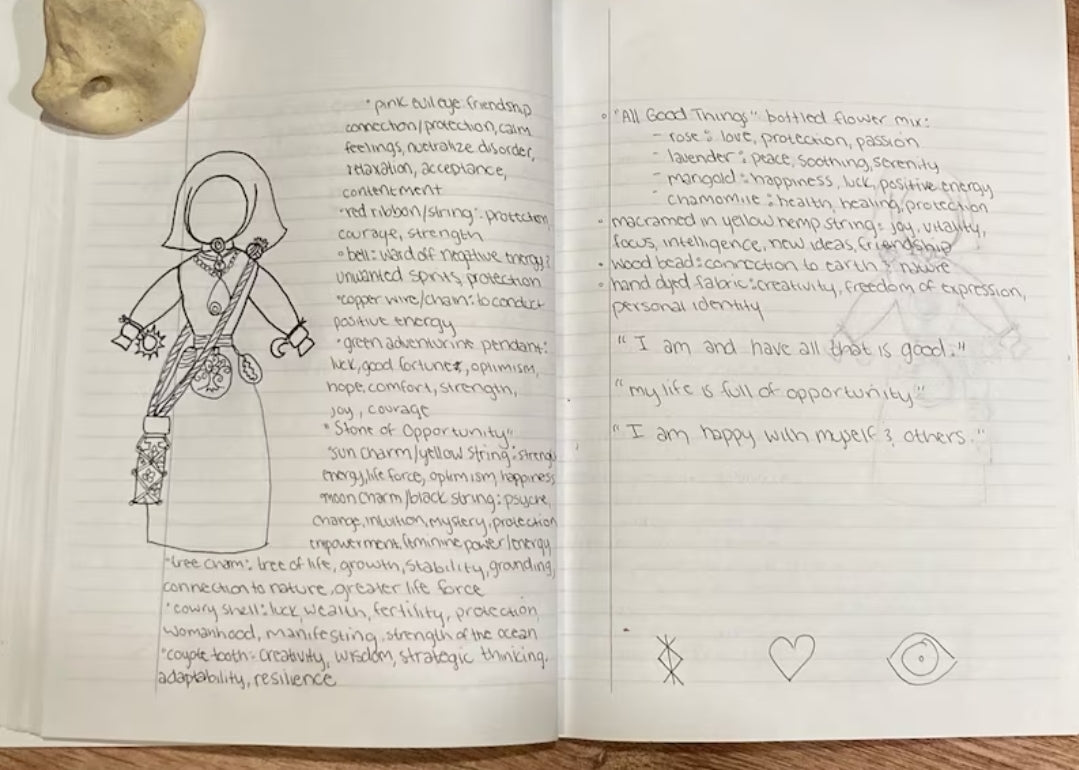 • pink evil eye: friendship
connection/protection, calm
feelings, nuetralize disorder,
relaxation, acceptance,
contentment
• red ribbon/string: protection,
courage, strength
• bell: ward off negative energy &
unwanted spirits, protection
• copper wire/chain: to conduct
positive energy
• green adventurine pendant:
luck, good fortune, optimism,
hope, comfort, strength,
joy, courage
"Stone of Opportunity"
• sun charm/yellow string: strength
energy, life force, optimism, happiness
moon charm/black string: psyche,
change, intuition, mystery, protection
empowerment, feminine power/energy
• tree charm: tree of life, growth, stability, grounding,
connection to nature, greater life force
• cowry shell: luck, wealth, fertility, protection,
womanhood, manifesting, strength of the ocean
• coyote tooth: creativity, wisdom, strategic thinking,
adaptability, resilience
• "All Good Things" bottled flower mix:
- rose: love, protection, passion
- lavender: peace, soothing, serenity
- marigold: happiness, luck, positive energy
- chamomile: health, healing, protection
• macramed in yellow hemp string: joy, vitality,
focus, intelligence, new ideas, friendship
• wood bead: connection to earth & nature
• hand dyed fabric: creativity, freedom of expression,
personal identity
"I am and have all that is good."
"my life is full of opportunity"
"I am happy with myself & others."